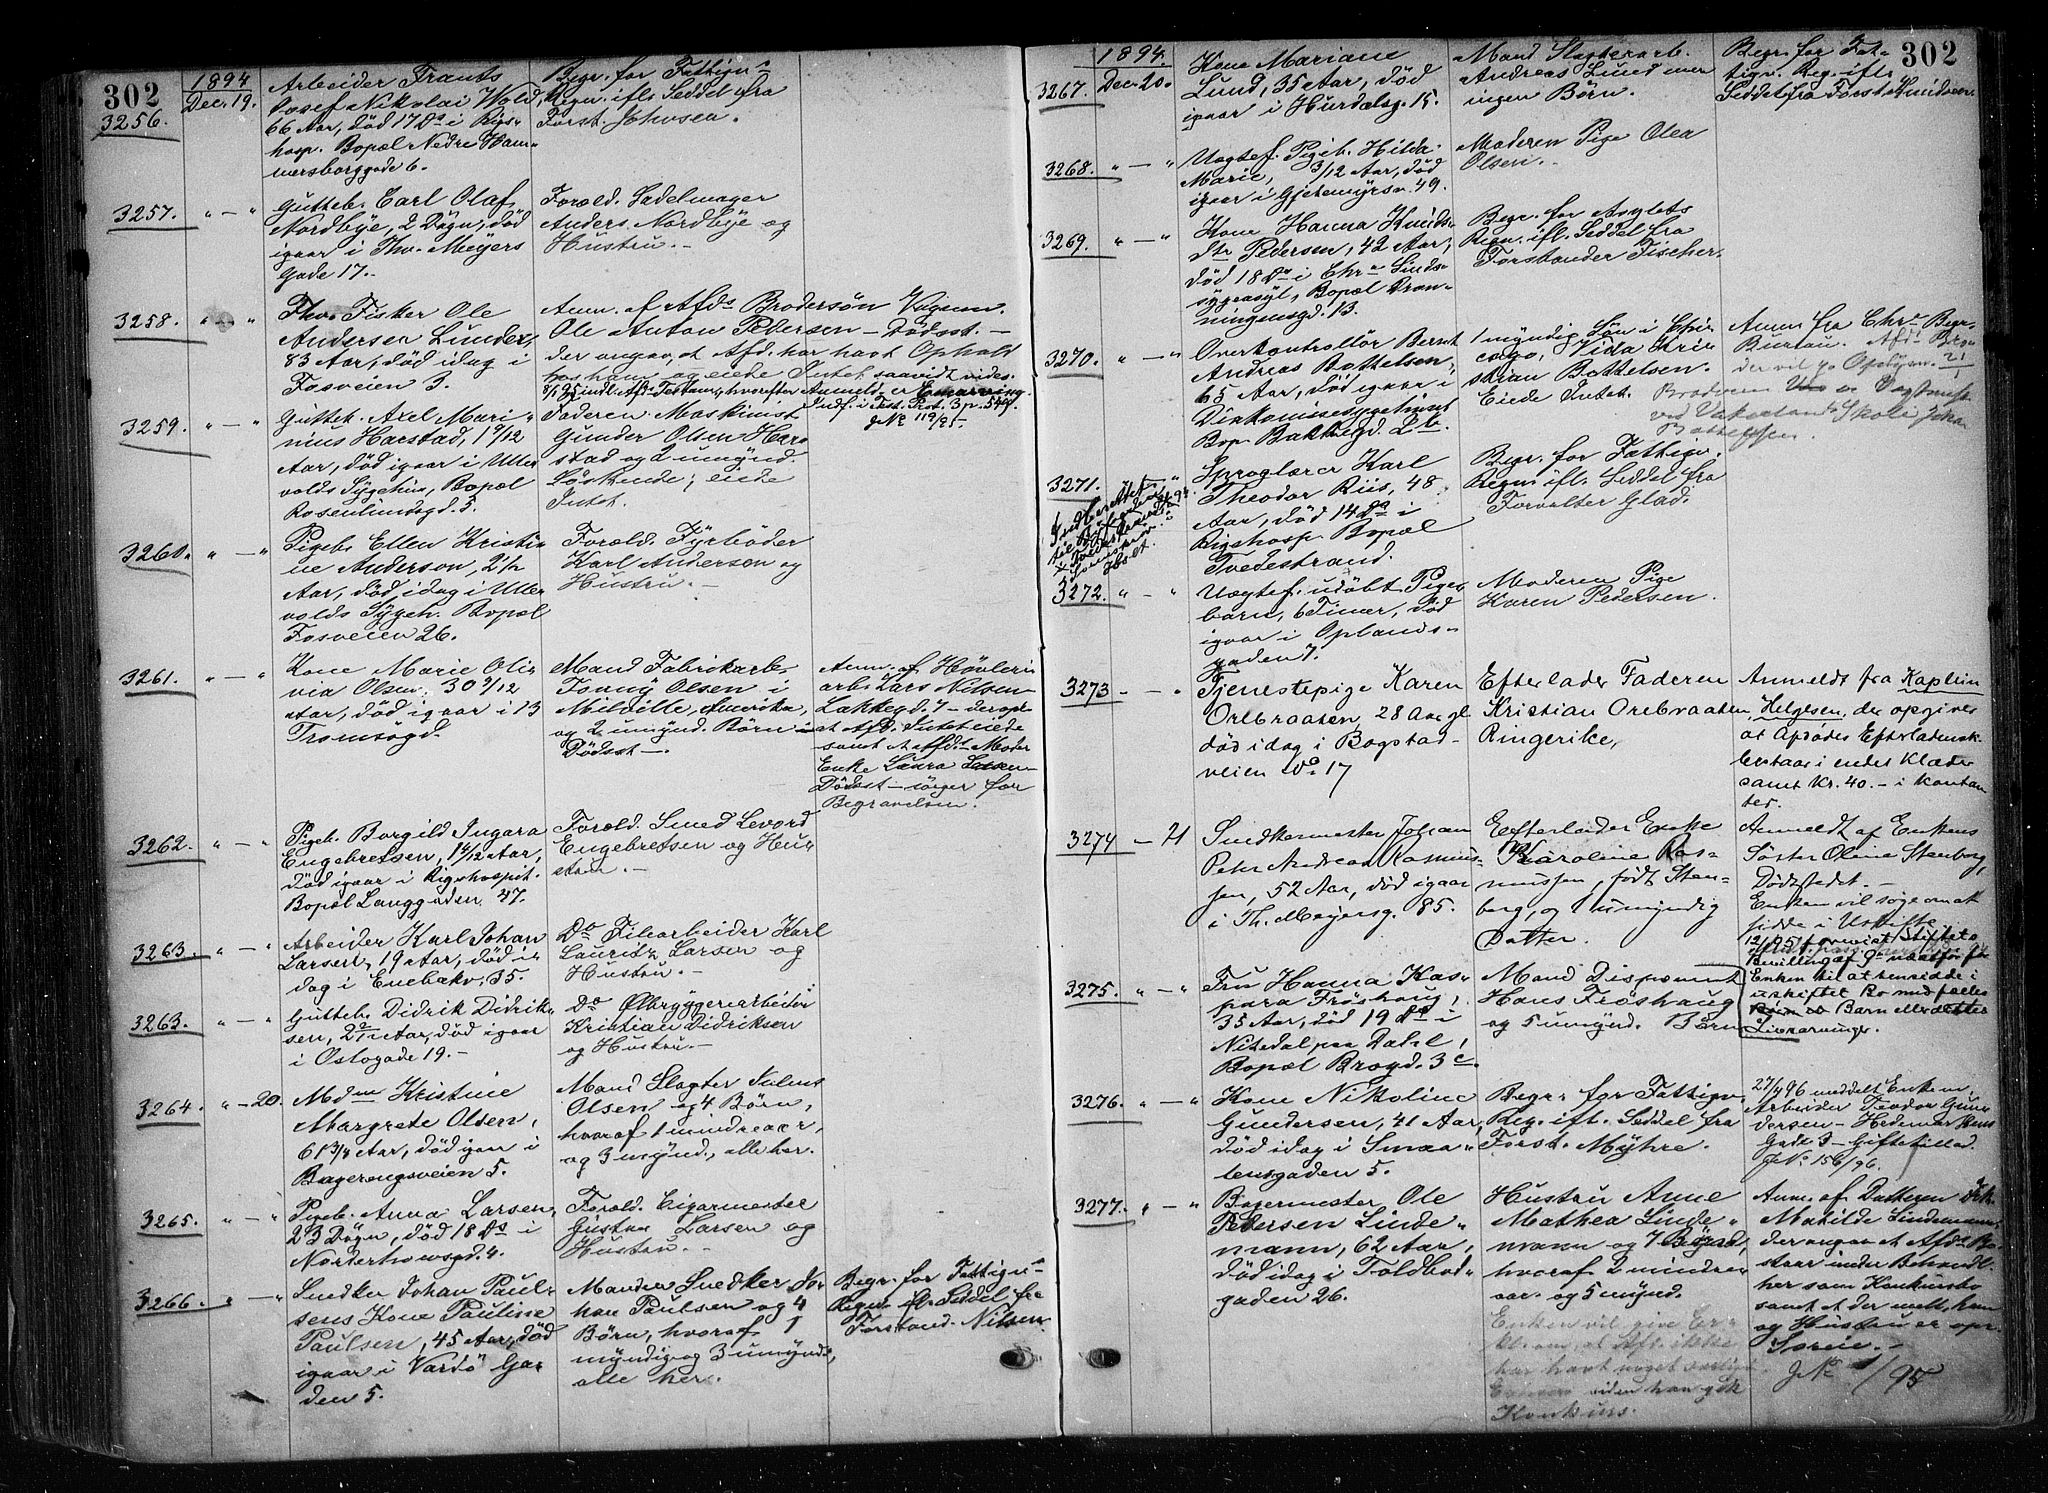 302
1894
3256. Dec. 19. Arbeider Frants
Josef Nikolai Wold,
66 Aar, død 17 Ds i Rigs=
hosp. Bopæl Nedre Ham=
mersborggade 6.
Begr. for Fattigv.
Regn. ifl. Seddel fra
Forst. Johnsen.
3257. " — " Gutteb. Carl Olaf
Nordbye, 2 Døgn, død
igaar i Thv. Meyers
Gade 17.
Foræld. Sadelmager
Anders Nordbye og
Hustru. —
3258. " — " Fhv. Fisker Ole
Andersen Lunder,
83 Aar, død idag i
Fosveien 3.
Anm. af Afds Brodersøn Vognm.
Ole Anton Pedersen — Dødsst. —
der angav, at Afd. har havt Ophold
hos ham og eiede Intet saavidt vides.
3259. " — " Gutteb. Axel Mari=
nius Harstad, 1 9/12
Aar, død igaar i Ulle=
volds Sygehus, Bopæl
Rosenlundsgd. 5.
Faderen Maskinist
Gunder Olsen Har=
stad og 2 umynd.
Søskende; eiede
Intet.
Indf. i Test. Prot. 3 p. 549.
JNo 119/95.
3260. " — " Pigeb. Ellen Kristi=
ne Andersen, 2 1/2
Aar, død idag i Ulle=
volds Sygeh. Bopæl
Fosveien 26.
Foræld. Fyrbøder
Karl Andersen og
Hustru. —
3261. " — " Kone Marie Oli=
via Olsen, 30 9/12
Aar, død igaar i 13
Tromsøgd.
Mand Fabrikarb.
Jonny Olsen i
Amerika,
og 2 umynd. Børn i
Dødsst. —
Anm. af Høvleri=
arb. Lars Nilsen
Lakkegd. 7 — der opg.
at Afd. Intet eiede
samt at Afds Moder
Enke Laura Larsen
Dødsst — sørger for
Begravelsen.
3262. " — " Pigeb. Borgild Ingara
Engebretsen, 14/12 Aar,
død igaar i Rigshospit.
Bopæl Langgaden 47.
Foræld. Smed Levord
Engebretsen og Hu=
stru. —
3263. " — " Arbeider Karl Johan
Larsen, 19 Aar, død i=
dag i Enebakv. 35.
Do Filearbeider Karl
Lauritz Larsen og
Hustru. —
3263. " — " Gutteb. Didrik Didrik=
sen, Aar, død igaar
i Oslogade 19. —
Do Ølbryggerarbeider
Kristian Didriksen
og Hustru. —
3264. " — 20. Mdm Kristine
Margrete Olsen,
61 3/4 Aar, død igaar i
Bagerengsveien 5.
Mand Slagter Julius
Olsen og 4 Børn,
hvoraf 1 mindreaar,
og 3 mynd., alle her.
3265. " — " Pigeb. Anna Larsen,
23 Døgn, død 18 Ds i
Norderhovsgd. 4.
Foræld. Cigarmester
Gustav Larsen og
Hustru. —
3266. " — " Snedker Johan Paul=
sens Kone Pauline
Paulsen, 45 Aar, død
igaar i Vardø Ga=
den 5.
Manden Snedker Jo=
han Paulsen og 4
Børn, hvoraf 1
myndig og 3 umynd.,
alle her.
Begr. for Fattigv.=
Regn. ifl. Seddel fra
Forstand. Nilsen.
302
1894.
3267. Dec. 20. Kone Mariane
Lund, 35 Aar, død
igaar i Hurdalsg. 15.
Mand Slagterarb.
Andreas Lund men
ingen Børn.
Begr. for Fat=
tigv. Reg. ifl.
Seddel fra Forst.
3268. " — " Uægtef. Pigeb. Hilda
Marie, 3/12 Aar, død
igaar i Gjetemyrsv. 49.
Moderen Pige Olea
Olsen. —
3269. " — " Kone Hanna Knuds=
dtr Pedersen, 42 Aar,
død 18 Ds i Chra Sinds=
sygeasyl, Bopæl Dron=
ningensgd. 13.
Begr. for Asylets
Regn. ifl. Seddel fra
Forstander Fischer.
3270. " — " Overkontrollør Bernt
Andreas Bottelsen,
65 Aar, død igaar i
Diakonissegetinst
Bop. Bakkegd. 2 b.
1 myndig Søn i Chi=
cago, Vida Kri=
stian Bottelsen.
Eiede Intet.
Anm. fra Chra Begr.
Bureau. Afds Bro=
der vil gi Oplysn. 21/1
ved Vaterlands Skole Joha
Bottelsen.
3271. — " Sproglærer Karl
Theodor Riis, 48
Aar, død 14 Ds i
Rigshosp. Bopæl
Tvedestrand.
Begr. for Fattigv.
Regn. ifl. Seddel fra
Forvalter Glad.
Indberettet
Holt.
3272. " — " Uægtef. udøbt Pige=
barn, 6 Timer, død
igaar i Oplands=
gaden 7.
Moderen Pige
Karen Pedersen.
3273 — — " Tjenestepige Karen
Orebraaten, 28 Aar gl.
død idag i Bogstad=
veien No 17
Efterlader Faderen
Kristian Orebraaten,
Ringerike,
Anmeldt fra Kaplein
Helgesen, der opgives
at Afdødes Efterladensk.
bestaar i endel Klæder
samt Kr. 40. — i kontan=
ter.
3274 — 21 Snedkermester Johan
Peter Andreas Rasmus=
sen, 52 Aar, død igaar
i Th. Meyersg. 85.
Efterlader Enke
Karoline Ras=
mussen, født Sten=
berg, og 1 umyndig
Datter.
Anmeldt af Enkens
Søster Oline Stenberg,
Dødsstedet. —
Enken vil søge om at
sidde i Uskifte.
12/1 95 forevist Stiftets
Bevilling af 9 ds for
Enken til at hensidde i
uskiftet Bo med fælles
Barn eller dettes
Livsarvinger.
3275. " — " Fru Hanna Kas=
para Frøshaug,
35 Aar, død 19 Ds i
Nitedal paa Dahl,
Bopæl Brogd. 3 c.
Mand Disponent
Hans Frøshaug
og 5 umynd. Børn
3276. " — " Kone Nikoline
Gundersen, 41 Aar,
død idag i Smaa=
lensgaden 5.
Begr. for Fattigv.
Reg. ifl. Seddel fra
Forst. Myhre.
27/4 96 meddelt Enkem.
Arbeider Teodor Gun=
dersen — Hedemarkens
Gade 3 — Giftetillad.
JNo. 156/96.
3277. " — " Bagermester Ole
Pedersen Linde=
mann, 62 Aar,
død idag i Toldbod=
gaden 26.
Hustru Anne
Mathea Linde=
mann og 7 Børn,
hvoraf 2 mindre=
aar. og 5 mynd.
Enken vil give Er=
kl. om, at Afd. ikke
har havt noget særligt
Erhverv siden han gik
Konkurs.
Anm. af Datteren Frk.
Matilde Lindemann,
der angav at Afds Bo
staar under Behandl.
her som Konkursbo
samt at der mell. ham
og Hustru er opr.
Særeie. —
JNo 1/95